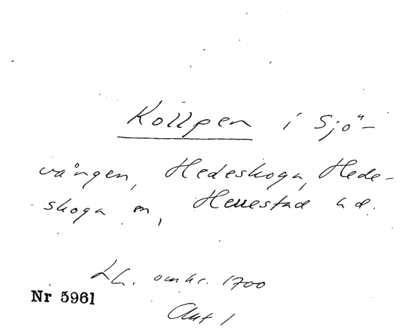 Köllpen i Sjö-
vången, Hedeskoga, Hede-
skoga sn, Herrestad hd.
Lh. omkr. 1700
Nr 5961
Akt 1